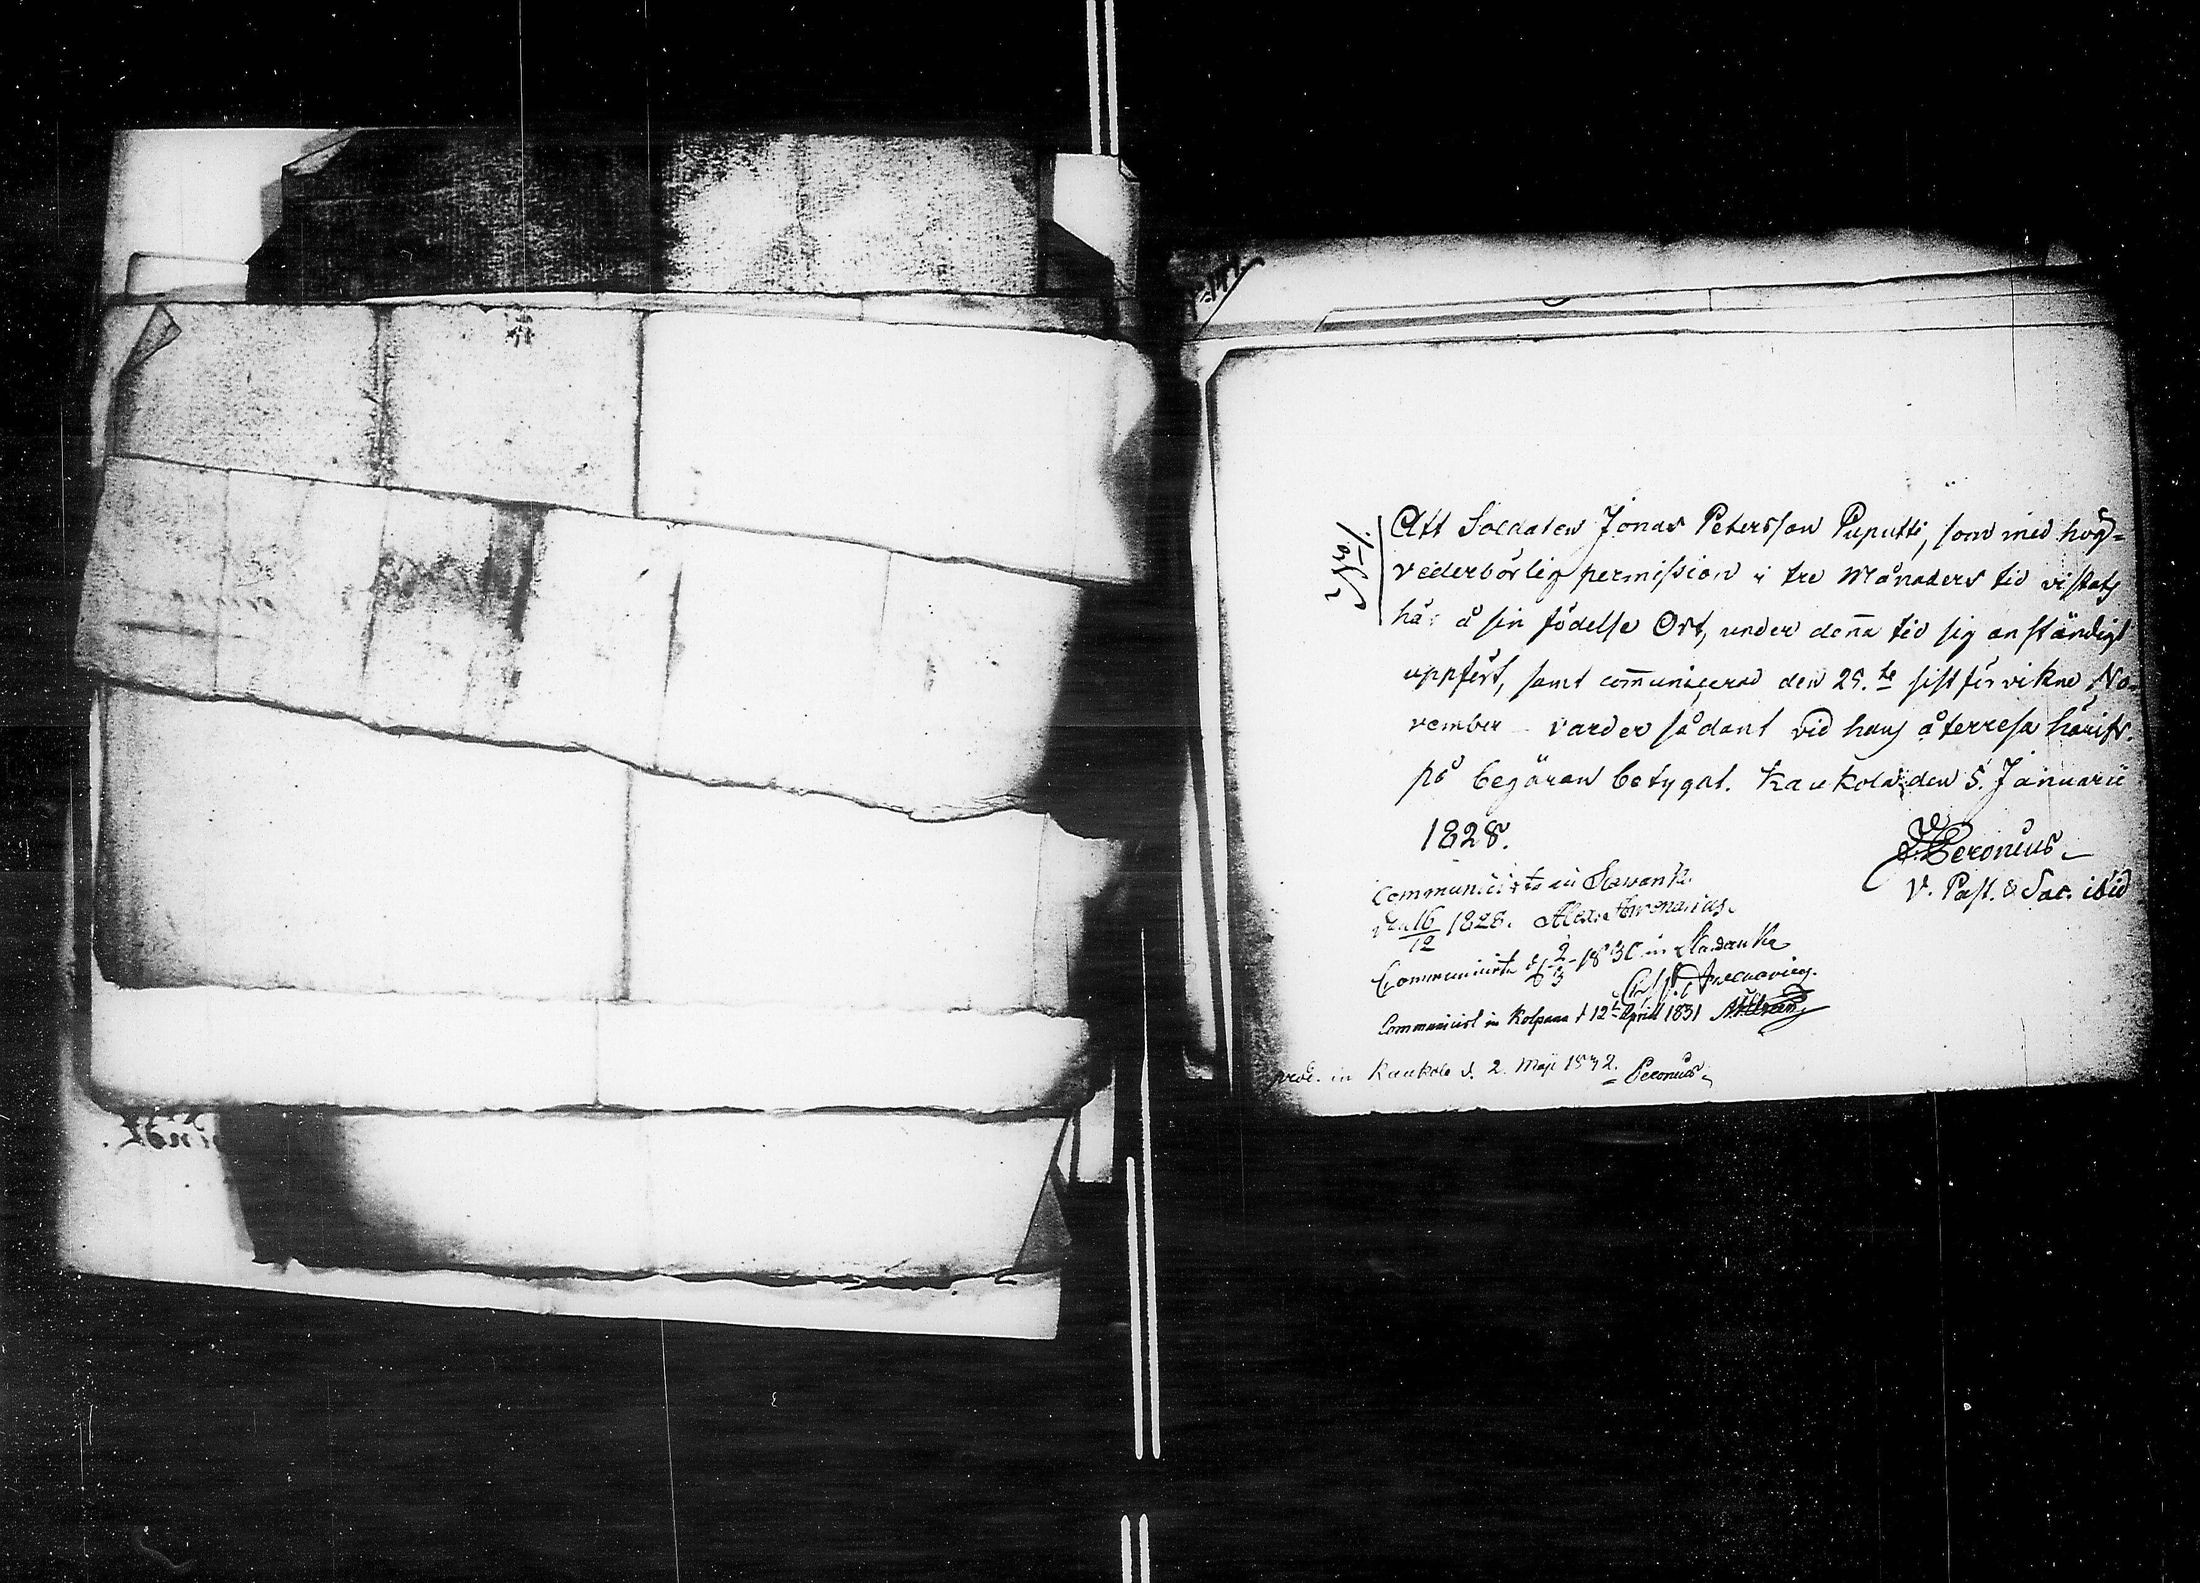 Att Soldaten Jonas Petersson Puputti, som med hög-
vederbörlig permission i tre Månaders tid vistats
här å sin födelse Ort, under denna tid sig anständigt
uppfört, samt communicerad den 25.te sistförvikne No-
vember varder sådant vid hans återresa härifr.
på begäran betygat. Kaukola, den 5. Januarii
1828.
Peronius
V. Past. & Sac. ibid
Communicirte in Slawanka
den 16/12 1828.
Communicirte d 2/3 1830 in Slawanka
Communicirt in Kolpana d 12t April 1831
prod. in Kaukola d. 2. Maji 1832. Peronius